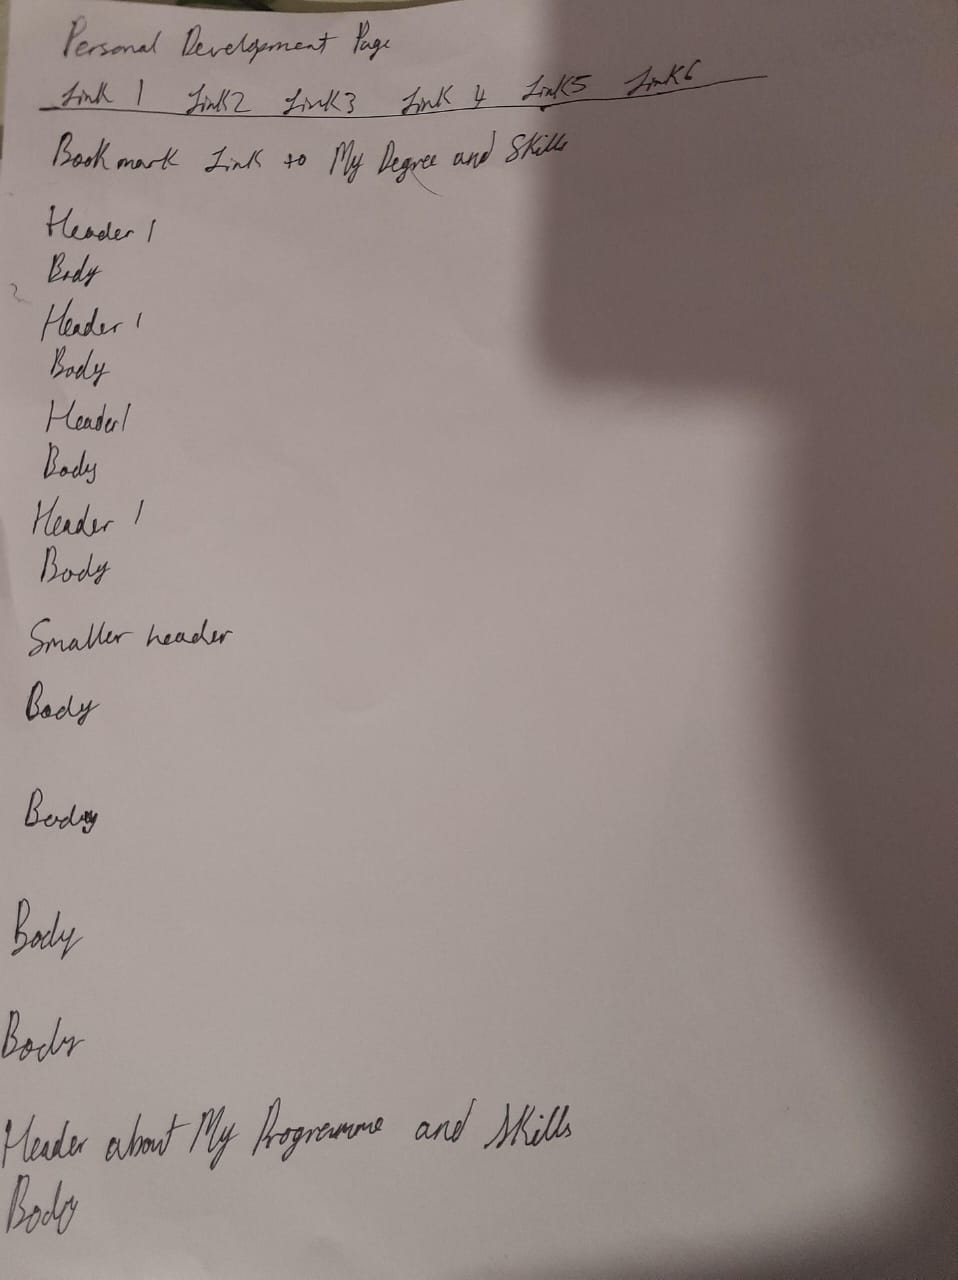 Personal Development Page
Link 1 Link2 Link3 Link 4 Link5 Link6
Bookmark Link to My Degree and Skills
Header 1
Body
Header 1
Body
Header1
Body
Header 1
Body
Smaller header
Body
Body
Body
Body
Header about My Programme and Skills
Body